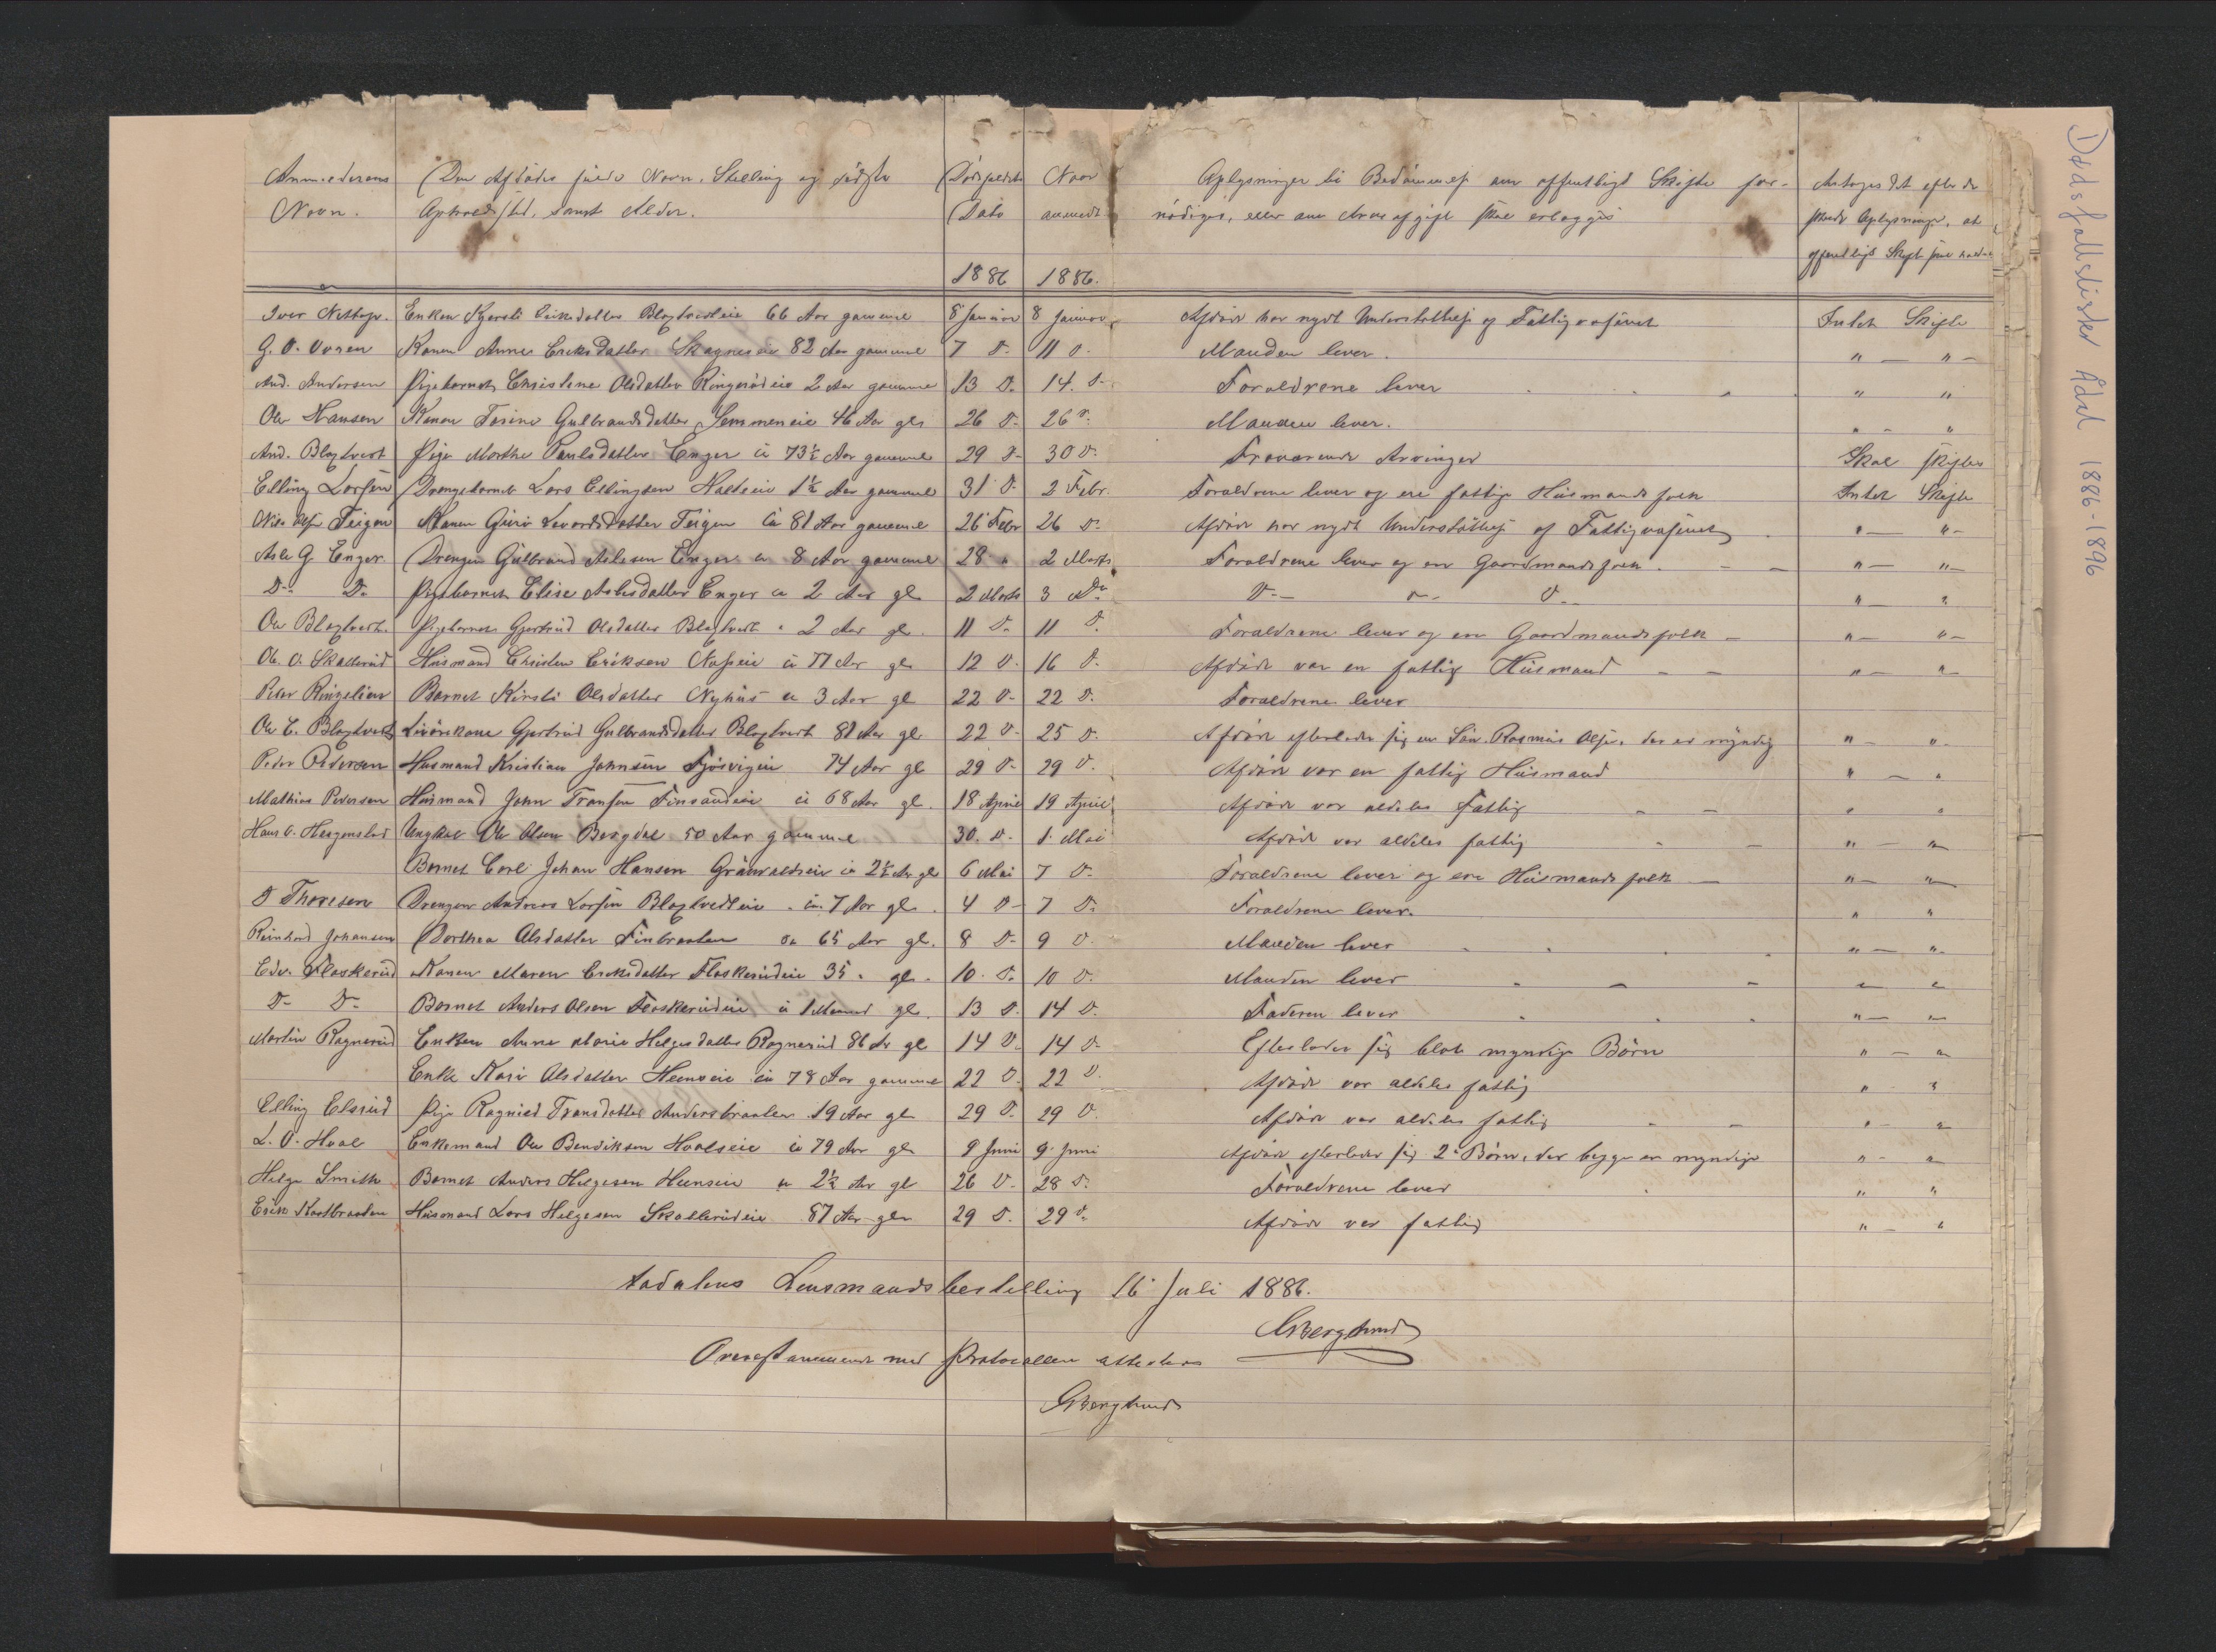 Anmelderens | Den Afdødes fulde Navn, Stilling og sidste | Dødsfaldets | Naar | Oplysninger til Bedømmelse om offentligt Skifte for- | Antages det efter de
Navn. | Opholdssted, samt Alder. | Dato | anmeldt | nødiges, eller om Arveafgift skal erlægges | skeede Oplysninger, at
offentligt Skifte skal holdes
1886 | 1886.
Iver Nettop. | Enken Kjersti Eriksdatter Blaktvedteie 66 Aar gammel | 8 Januar | 8 Januar | Afdøde har nydt Understøttelse af Fattigvæsenet | Intet Skifte
G. O. Voren | Konen Anne Eriksdatter Skagneseie 82 Aar gammel | 7 D. | 11 D. | Manden lever. | " — " —
And. Andersen | Pigebarnet Christine Olsdatter Ringerudeie 2 Aar gammel | 13 D. | 14. D. | Forældrene lever | " "
Ole Hansen | Konen Gulbrandsdatter Semmeneie 46 Aar gl | 26 D. | 26 D. | Manden lever. | " - "
And. Blaktvedt | Pige Marthe Paulsdatter Enger ca 73½ Aar gammel | 29 D. | 30 D. | Fraværende Arvinger | Skal skiftes
Elling Larsen | Drengebarnet Lars Ellingsen 1½ Aar gammel | 31 D. | 2 Febr. | Forældrene lever og ere fattige Husmandsfolk | Intet Skifte
Nils Teigen | Konen Guri Teigen ca 81 Aar gammel | 26 Febr | 26 D. | Afdøde har nydt Understøttelse af Fattigvæsenet | " — " —
Asle G. Enger | Drengen Gulbrand Aslesen Enger ca 8 Aar gammel | 28 " | 2 Marts | Forældrene lever og ere Gaardmandsfolk. | " — " —
D. D. | Pigebarnet Elise Aslesdatter Enger ca 2 Aar gl | 2 Marts | 3 D. | D. — D. — D. | " — "
Ole Blaktvedt. | Pigebarnet Gjertrud Olsdatter Blaktvedt " 2 Aar gl. | 11 D. | 11 D. | Forældrene lever og ere Gaardmandsfolk — | " — " —
Ole. O. Skallerud | Husmand Christen Eriksen Næseie ca 77 Aar gl | 12 D. | 16 D. | Afdøde var en fattig Husmand | " — "
Peter Ringelien | Barnet Kirsti Olsdatter Nyhus ca 3 Aar gl | 22 D. | 22 D. | Forældrene lever
Ole E. Blaktvedt | Livørekone Gjertrud Gulbrandsdatter Blaktvedt 81 Aar gl | 22 D. | 25 D. | Afdøde efterlader sig en Søn Rasmus Olsen, der er myndig | " — " —
Peder Pedersen | Husmand Kristian Johnsen 74 Aar gl | 29 D. | 29 D. | Afdøde var en fattig Husmand | " — "
Mathias Pedersen | Husmand John Fransen Finsandeie ca 68 Aar gl. | 18 April | 19 April | Afdøde var aldeles Fattig | " "
Hans O. | Ungkal Ole Olsen Bergdal 50 Aar gammel | 30. D. | 1. Mai | Afdøde var aldeles fattig | " — "
Barnet Carl Johan Hansen ca 2½ Aar gl | 6 Mai | 7 D. | Forældrene lever og ere Husmandsfolk — | " — "
D Thoresen | Drengen Andreas Larsen Blaktvedteie ca. 7 Aar gl. | 4 D. | 7 D. | Forældrene lever. | " "
Reinhard Johansen | Dorthea Olsdatter Finbraaten ca 65 Aar gl. | 8 D. | 9 D. | Manden lever | " — "
Edv. Flaskerud | Konen Maren Eriksdatter Flaskerudeie 35 " gl. | 10. D. | 10 D. | Manden lever | " "
D. D. | Barnet Anders Olsen Flaskerudeie ca 1 Maaned gl. | 13 D. | 14 D. | Faderen lever | " — "
Martin Ragnerud | Enken Anne Marie Helgesdatter Ragnerud 86 Ar gl | 14 D. | 14 D. | Efterlader sig blot myndige Børn | " — "
Enke Kari Olsdatter Heenseie ca 78 Aar gammel | 22 D. | 22 D. | Afdøde var aldeles fattig | " "
Elling Elsrud | Pige Ragnild Fransdatter Andersbraaten 19 Aar gl | 29 D. | 29 D. | Afdøde var aldeles fattig | " — "
L. O. Hval | Enkemand Ole Bendiksen Hvalseie ca 79 Aar gl | 9 Juni | 9 Juni | Afdøde efterlader sig 2 Børn, der begge er myndige | " - "
Helge Smith | Barnet Anders Helgesen Heenseie ca 2½ Aar gl | 26 D. | 28 D. | Forældrene lever | " "
Erik Kastbraaten | Husmand Lars Helgesen Skallerudeie 87 Aar gl | 29 D. | 29 D. | Afdøde var fattig | " — "
Aadalens Lensmandsbestilling 16 Juli 1886.
GBerglund
Overenstemmende med Protocollen attesteres
GBerglund
Dødsfallslister Ådal 1886-1896